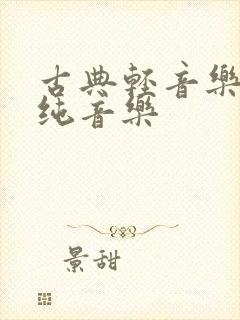 古典輕音樂
纯音樂
景甜